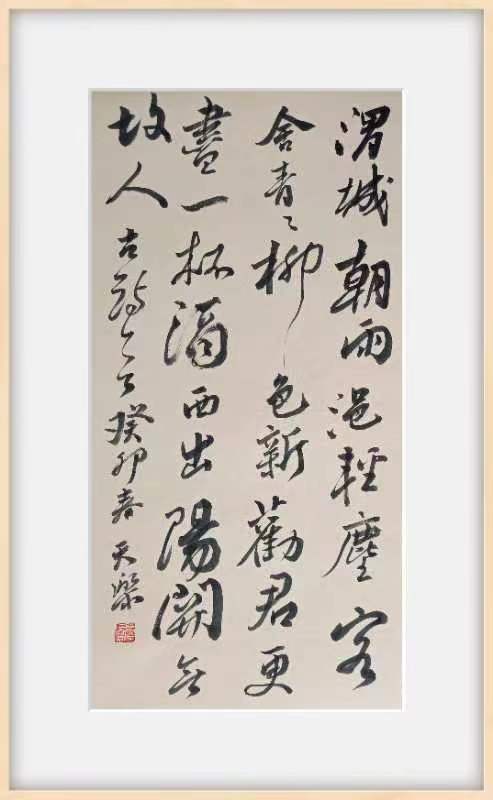 渭城朝雨浥輕塵客
舍青〻柳色新勸君更
盡一杯酒西出陽關無
故人 古詩 癸卯春 天